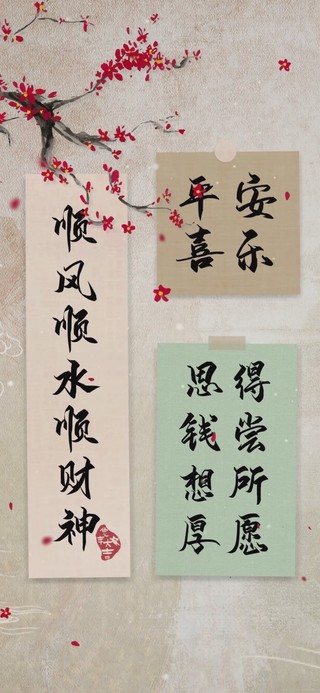 顺风顺水顺财神
平安
喜乐
得尝所愿
思钱想厚